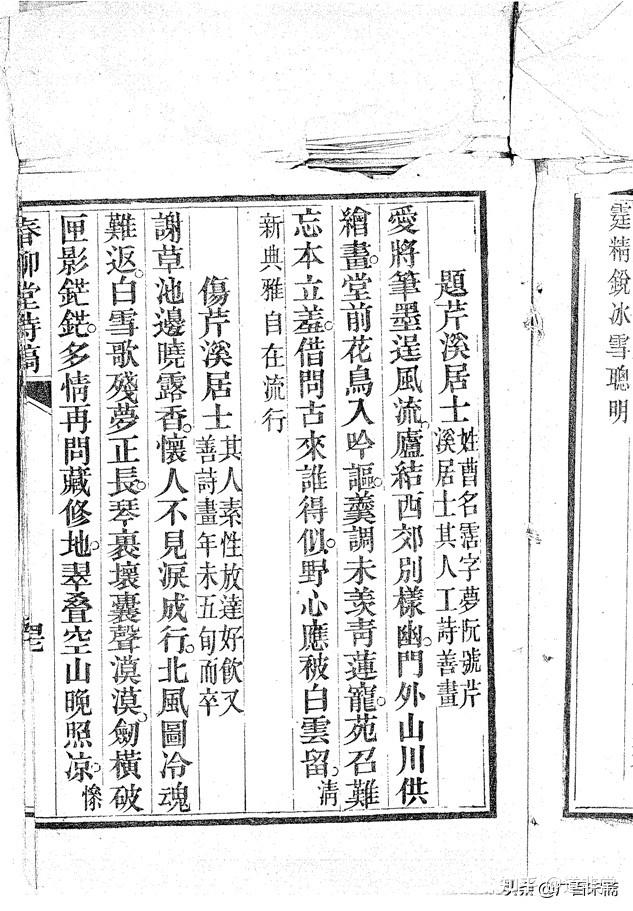 霆精銳冰雪聰明
題芹溪居士
姓曹名霑字夢阮號芹
溪居士其人工詩善畫
愛將筆墨逞風流。廬結西郊別樣幽。門外山川供
繪畫。堂前花鳥入吟謳。羹調未羨青蓮寵。苑召難
忘本立羞。借問古來誰得似。野心應被白雲留。清
新典雅自在流行
傷芹溪居士
其人素性放達好飲又
善詩畫年未五旬而卒
謝草池邊曉露香。懷人不見淚成行。北風圖冷魂
難返。白雪歌殘夢正長。琴裹壞囊聲漠漠。劍橫破
匣影鋩鋩。多情再問藏修地。翠叠空山晚照凉。慘
春柳堂詩稿
知乎
头条